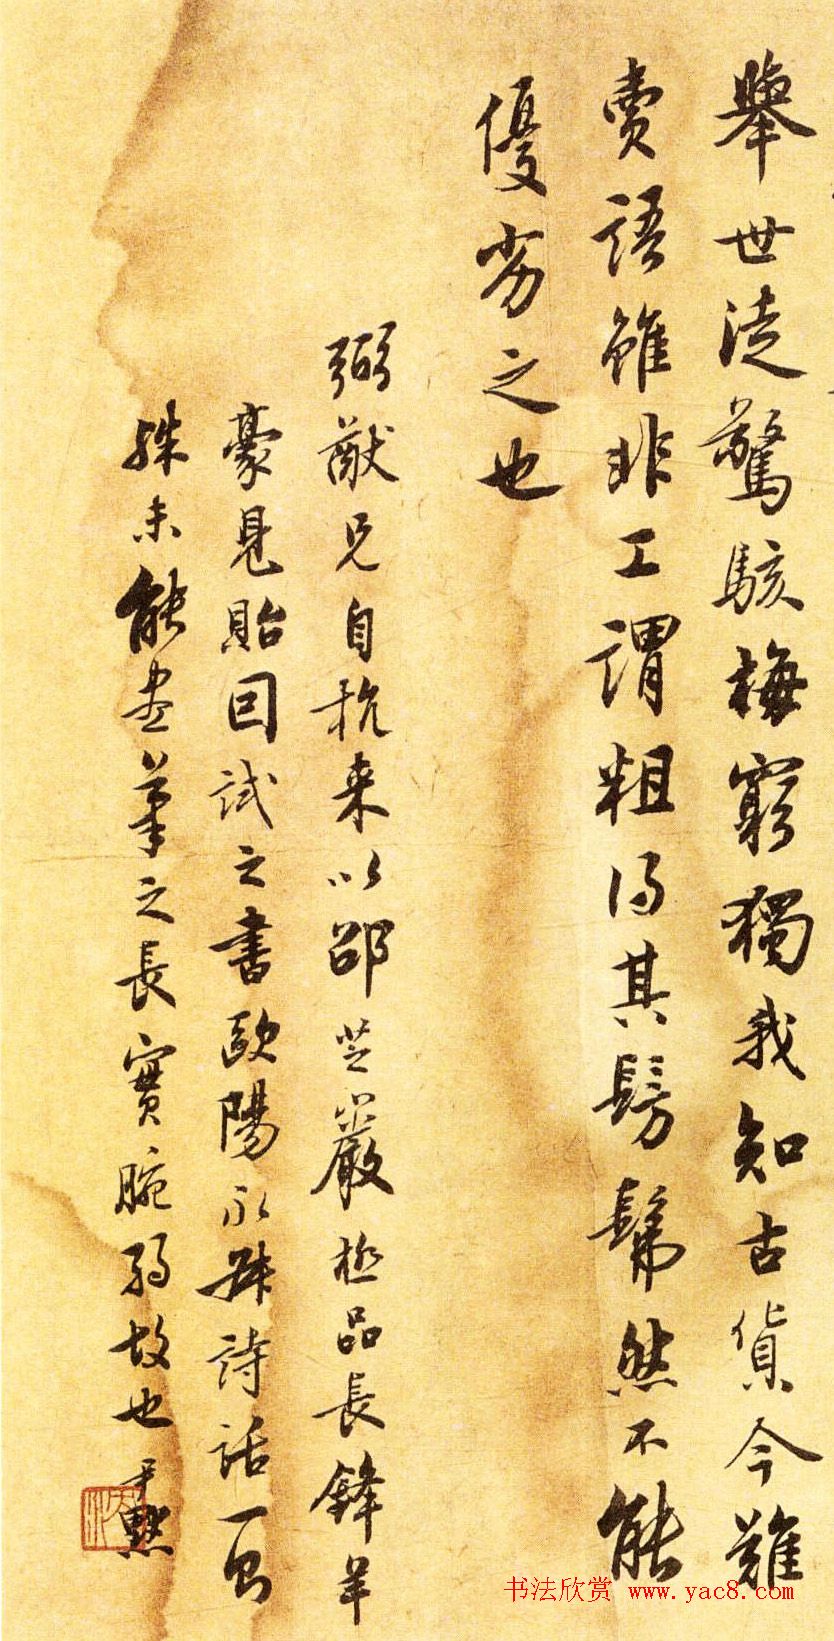 舉世徒驚駭梅窮獨我知古貨今難
賣語雖非工謂粗得其髣髴然不能
優劣之也
弼猷兄自杭来以邵芝巖極品長鋒羊
豪見貽囙試之書歐陽永叔詩話一
殊未能盡筆之長實腕弱故也尹默
书法欣赏 www.yac8.com